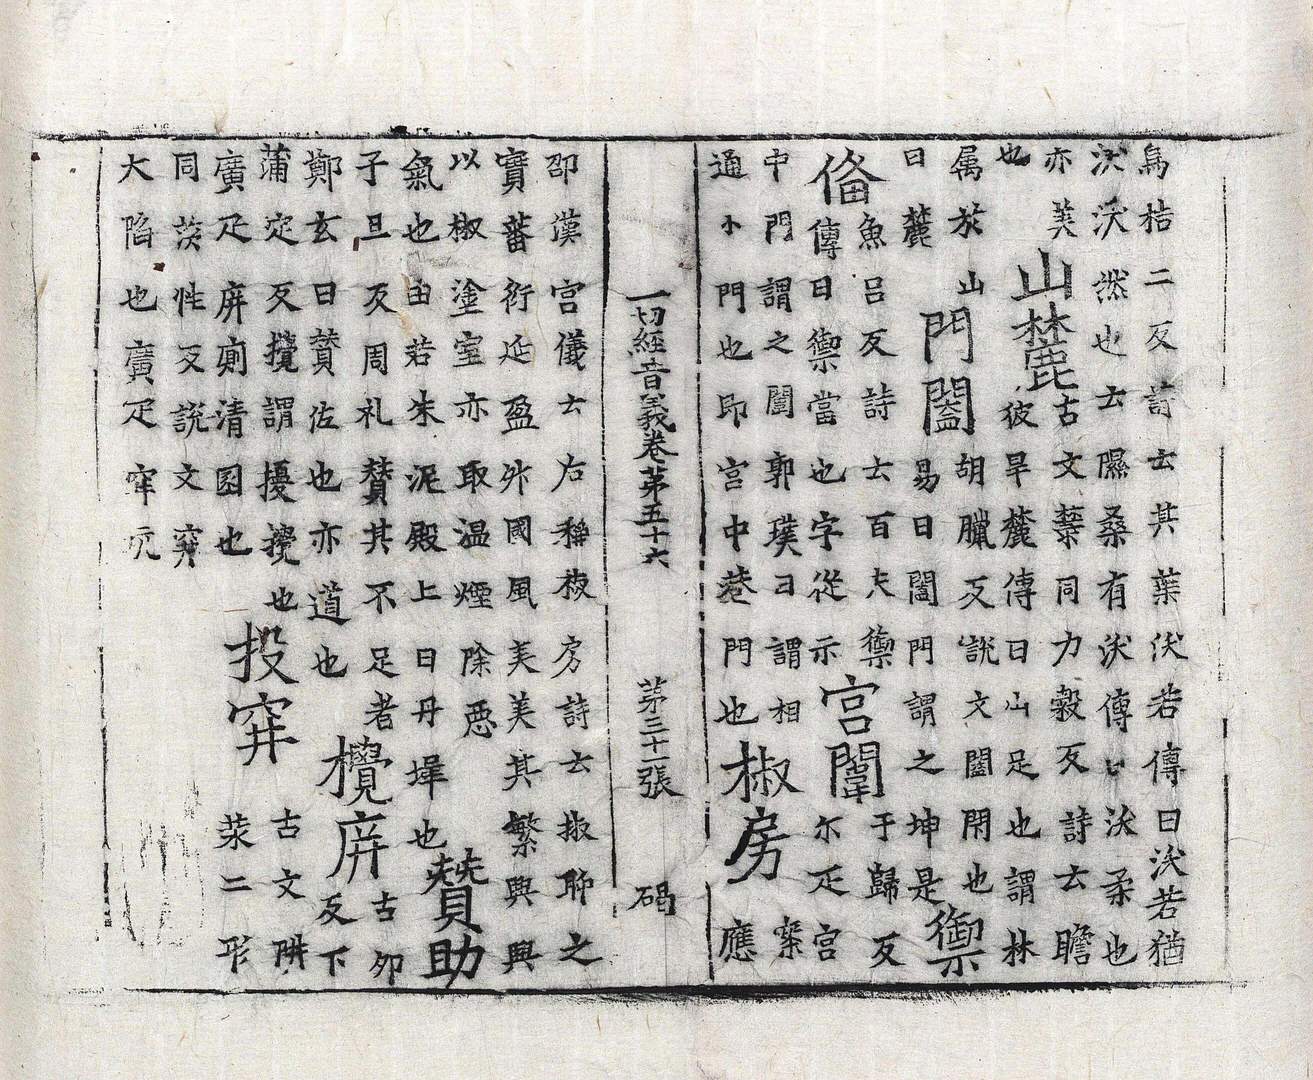 烏桔二反詩云其葉沃若傳曰沃若猶
沃沃然也云隰桑有沃傳曰沃柔也
亦美
也
山麓
古文𦽌同力穀反詩云瞻
彼旱麓傳曰山足也謂林
属於山
曰麓
門闔
胡臘反說文闔閇也
易曰闔門謂之坤是
禦
備
魚呂反詩云百夫禦
傳曰禦當也字從示
宮闈
于歸反
尒疋宮
中門謂之闈郭璞曰謂相
通小門也即宮中巷門也
椒房
案
應
一切經音義卷第五十六 第三十一張 碣
邵漢官儀云后稱椒房詩云椒聊之
實蕃衍延盈升國風美美其繁興興
以椒塗室亦取温煙除惡
氣也由若朱泥殿上曰丹墀也
賛助
子旦反周礼賛其不足者
鄭玄曰賛佐也亦道也
攪屏
古卯
反下
蒲定反攪謂擾攪也
廣疋屏廁清圂也
投穽
古文阱
汬二形
同茨性反說文穽
大陷也廣疋穽坑